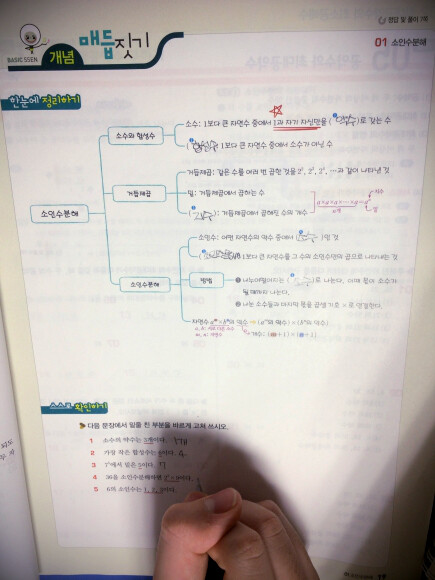 정답 및 풀이 7쪽
BASIC SSEN
개념 매듭짓기
01 소인수분해
한눈에 정리하기
소수와 합성수
소수: 1보다 큰 자연수 중에서 1과 자기 자신만을 (약수)로 갖는 수
(합성수: 1보다 큰 자연수 중에서 소수가 아닌 수
소인수분해
거듭제곱
거듭제곱: 같은 수를 여러 번 곱한 것을 2², 2³, 2⁴, …과 같이 나타낸 것
밑: 거듭제곱에서 곱하는 수
(지수): 거듭제곱에서 곱해진 수의 개수
지수
밑
소인수분해
소인수: 어떤 자연수의 약수 중에서 (소수)인 것
1보다 큰 자연수를 그 수의 소인수만의 곱으로 나타내는 것
방법
❶ 나누어떨어지는 (소수)로 나눈다. 이때 몫이 소수가
될 때까지 나눈다.
❷ 나눈 소수들과 마지막 몫을 곱셈 기호 ×로 연결한다.
스스로 확인하기
다음 문장에서 밑줄 친 부분을 바르게 고쳐 쓰시오.
1 소수의 약수는 이다.
2 가장 작은 합성수는 이다. 4
3 에서 밑은 이다. 7
4 36을 소인수분해하면 이다.
5 6의 소인수는 1, 2, 3이다.